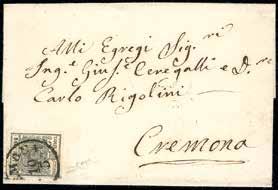 Alli Egregi Sig.ri
Ing.e Gius.e Ceregalli e D.re
Carlo Rigolini
Cremona